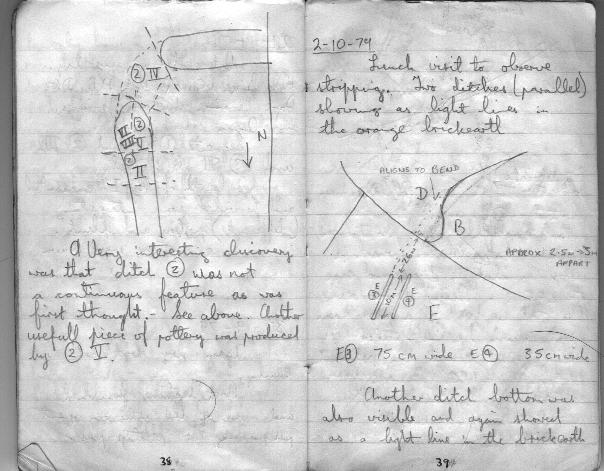 ② IV
VI ②
VII V
②
II
N
A Very interesting discovery
was that ditch ② was not
a continuous feature as was
first thought. - See above. Another
usefull piece of pottery was produced
by ② V.
38
2-10-79
Lunch visit to observe
stripping. Two ditches (parallel)
showing as light lines in
the orange brickearth
ALIGNS TO BEND
D
B
APPROX 2.5m → 3m
APART
E
③
E
④
E
E③ 75 cm wide E④ 35 cm wide
Another ditch bottom was
also visible and again showed
as a light line in the brickearth
39